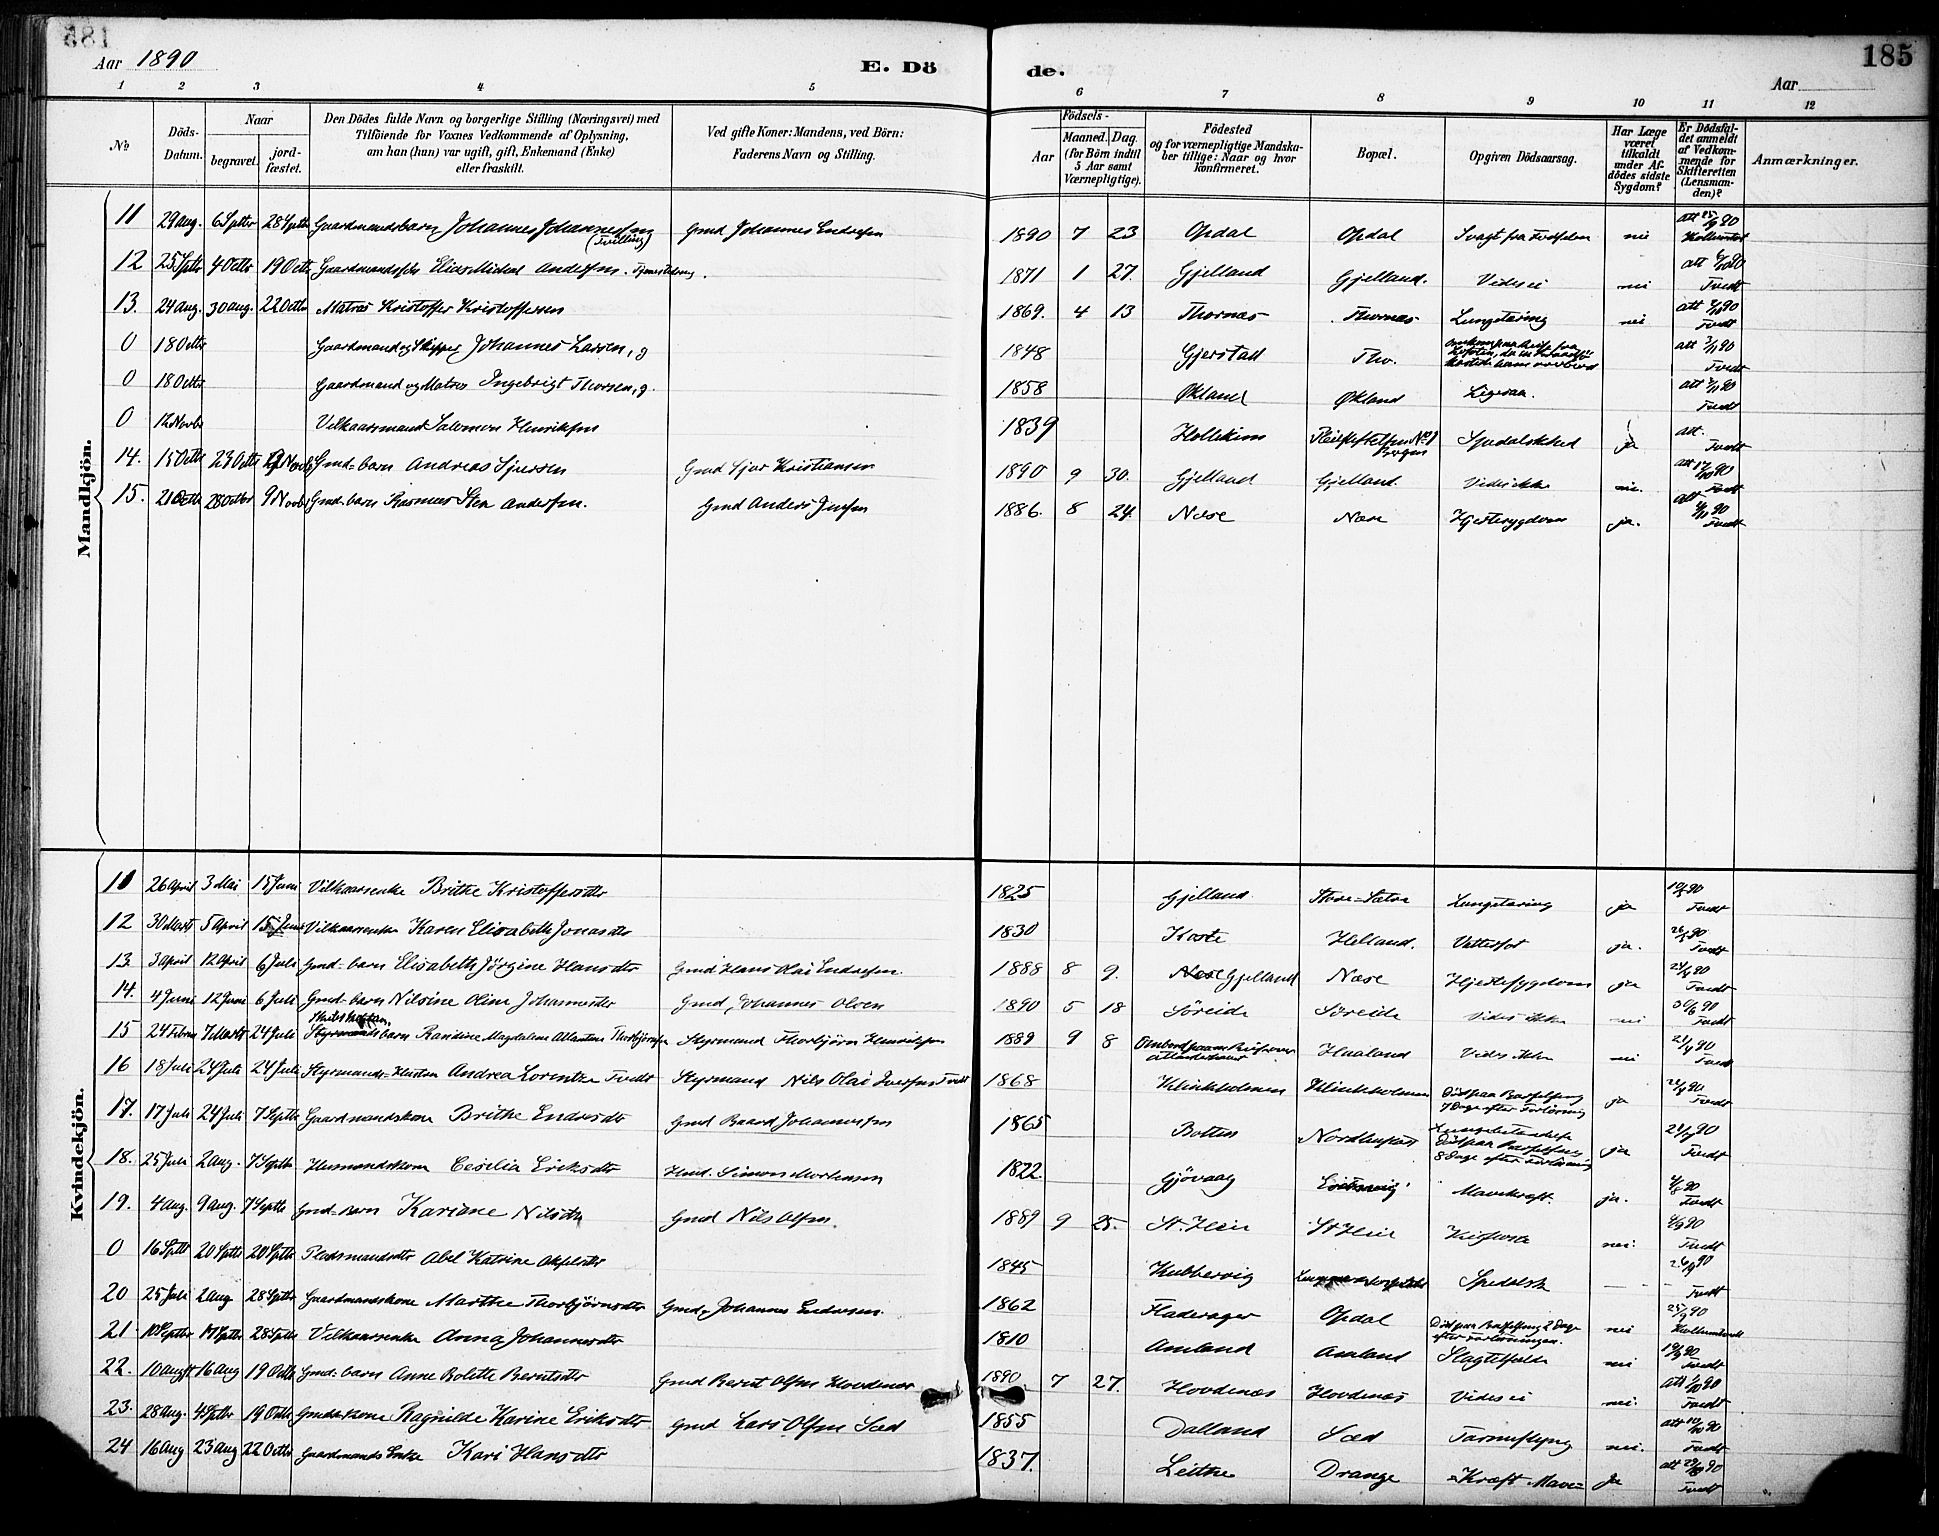 185
Aar 1890
E. Dö de.
Aar
1 2 3 4 5 6 7 8 9 10 11 12
№
Döds-Datum.
Naar
begravet.
jord-fæstet.
Den Dödes fulde Navn og borgerlige Stilling (Næringsvei) med
Tilföiende for Voxnes Vedkommende af Oplysning,
om han (hun) var ugift, gift, Enkemand (Enke)
eller fraskilt.
Ved gifte Koner: Mandens, ved Börn:
Faderens Navn og Stilling.
Födsels-
Aar
Maaned. Dag.
(for Börn indtil
5 Aar samt
Værnepligtige).
Födested
og for værnepligtige Mandska-
ber tillige: Naar og hvor
konfirmeret.
Bopæl.
Opgiven Dödsaarsag.
Har Læge
været
tilkaldt
under Af-
dödes sidste
Sygdom?
Er Dödsfal-
det anmeldt
af Vedkom-
mende for
Skifteretten
(Lensman-
den)?
Anmærkninger.
Mandkjön.
11 29 Aug. 6 Septbr 28 Septbr Gaardmandsbarn Johannes Johannessen (Tvilling) Gmd Johannes Endresen 1890 7 23 Opdal Opdal Svagt fra Fødselen nei att 90
12 25 Septbr 4 Octb 19 Octb Gaardmandssøn Elias Mikal Andersen. 1871 1 27. Gjelland Gjelland. Vides ei nei att 90 Tvedt
13. 24 Aug. 30 Aug. 22 Octbr Matros Kristoffer Kristoffersen 1869. 4 13 Thornæs Thornæs Lungetæring nei att 90 Tvedt
0 18 Octbr Gaardmand og Skipper Johannes Larsen, g 1848 Gjerstad Tho. att 90 Tvedt
0 18 Octbr Gaardmand og Matros Ingebrigt Thorsen, g. 1858 Økland Økland Ligesaa. att 90 Tvedt
0 12 Novbr Vilkaarsmand Salomon Henriksen 1839 Hollekim Pleiestiftelsen No 1 Bergen Spedalskhed ja att. Tvedt
14. 15 Octb 23 Octb 9 Novb Gmd-barn Andreas Sjursen Gmd Sjur Kristiansen 1890 9 30. Gjelland Gjelland. Vides ikke nei. att 90 Tvedt
15. 21 Octb 28 Octbr 9 Novb Gmd-barn Rasmus Sten Andersen. Gmd Anders Jensen 1886. 8 24. Næse Næse Hjertesygdom ja. att 90 Tvedt
Kvindekjön.
11 26 April 3 Mai 15 Juni Vilkaarsenke Brithe Kristoffersdtr 1825 Gjelland. Store-Sætre Lungetæring ja 90 Tvedt
12 30 Marts 5 April 15 Juni Vilkaarsenke Karen Elisabeth Jonasdtr 1830 Koste Helland. Vattersot ja. 90 Tvedt
13 3 April 12 April 6 Juli Gmd-barn Elisabeth Jørgine Hansdtr Gmd Hans Olai Endresen. 1888 8 9. Gjelland Næse Hjertesygdom ja 90 Tvedt
14. 4 Juni 12 Juni 6 Juli Gmd-barn Nilsine Oline Johannesdtr Gmd Johannes Olsen 1890 5 18 Søreide Søreide Vides ikke nei 90 Tvedt
15 24 Febru 7 Marts 24 Juli barn Randine Magdalene Atlantine Thorbjørnsen Styrmand Thorbjørn Henriksen 1889 9 8 Haaland Vides ikke nei 90 Tvedt
16 18 Juli 24 Juli 24 Juli Styrmands-Hustru Andrea Lorentze Tvedt Styrmand Nils Olai Iversen Tvedt 1868 Klinkholmen Klinkholmen Død paa Barselseng 7 Dage efter Forløsning ja 90 Tvedt
17. 17 Juli 24 Juli 7 Septb Gaardmandskone Brithe Endresdtr Gmd Baard Johannessen 1865 Botten Død paa Barselseng 8 Dage efter Forløsning ja 90 Tvedt
18. 25 Juli 2 Aug. 7 Septb Husmandskone Cesilia Eriksdtr Husmd. Simon Mortensen 1822. Gjøvaag Mavekræft. ja. 90 Tvedt
19. 4 Aug. 9 Aug. 7 Septb Gmd-Barn Kariane Nilsdtr Gmd Nils Olsen. 1889 9 25. St. Heie St Heie Kighoste nei. 90 Tvedt
0 16 Septb 20 Septb 20 Septb Pladsmandsdtr Abel Katrine Akselsdtr 1845 Kubbervig Spedalsk 90 Tvedt
20 25 Juli 2 Aug 28 Septbr Gaardmandskone Marthe Thorbjørnsdtr Gmd, Johannes Endresen. 1862 Fladerager Opdal Død paa Barselseng 2 Dage efter Forløsningen. nei 90
21. 10 Septbr 17 Septb 28 Septb Vilkaarsenke Anna Johannesdtr 1810 Amland Amland Slagtilfælde nei 90 Tvedt
22. 10 August 16 Aug 19 Octb Gmd-barn Anne Bolette Berntsdtr Gmd Bernt Olsen Hovdenæs 1890. 7 27. Hovdenæs Hovdenæs Vides ei nei. att 90 Tvedt
23. 28 Aug. 4 Septbr 19 Octb Gmdskone Ragnilde Karine Eriksdtr. Gmd Lars Olsen Sæd 1855 Dalland Sæd Tarmslyng nei. att 90 Tvedt
24 16 Aug 23 Aug 22 Octbr Gaardmands Enke Kari Hansdtr 1837. Leithe Drange Kræft Mave= Ja att 90 Tvedt